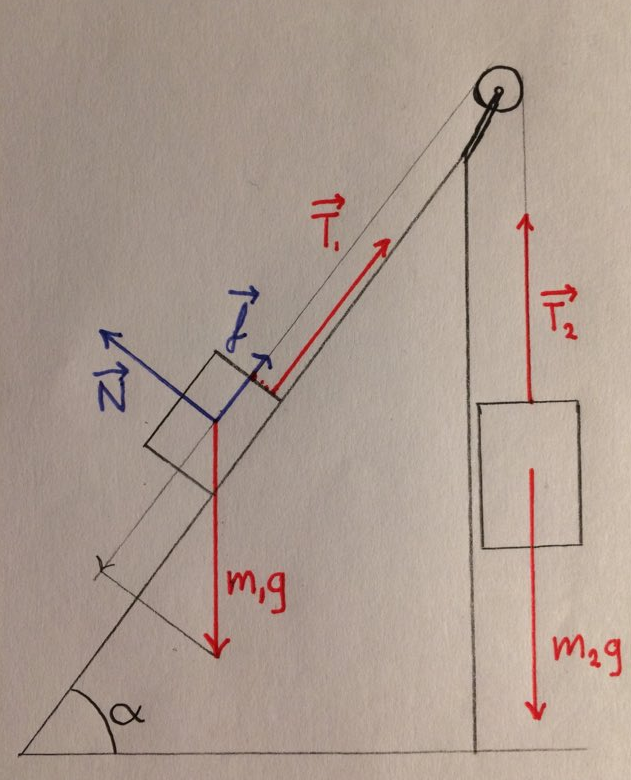 T₁
f
N
T₂
m₁g
m₂g
α